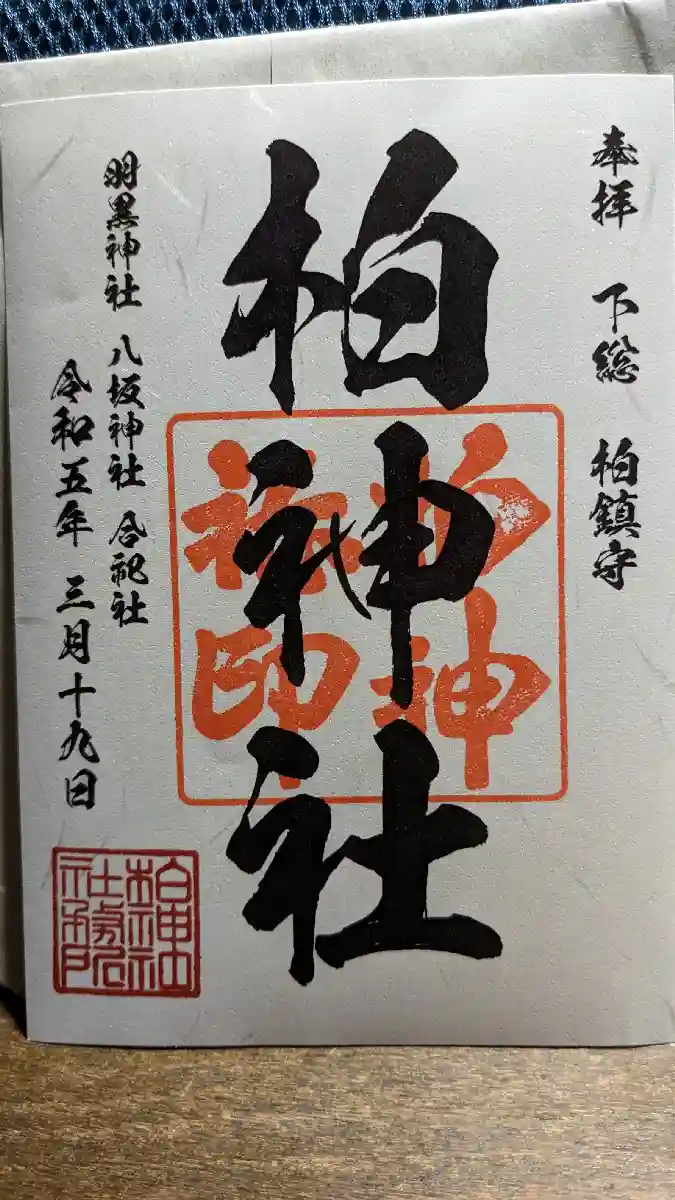 奉拝 下総 柏鎮守
柏神社
羽黒神社 八坂神社 合祀社
令和五年 三月十九日
柏神社
社務所